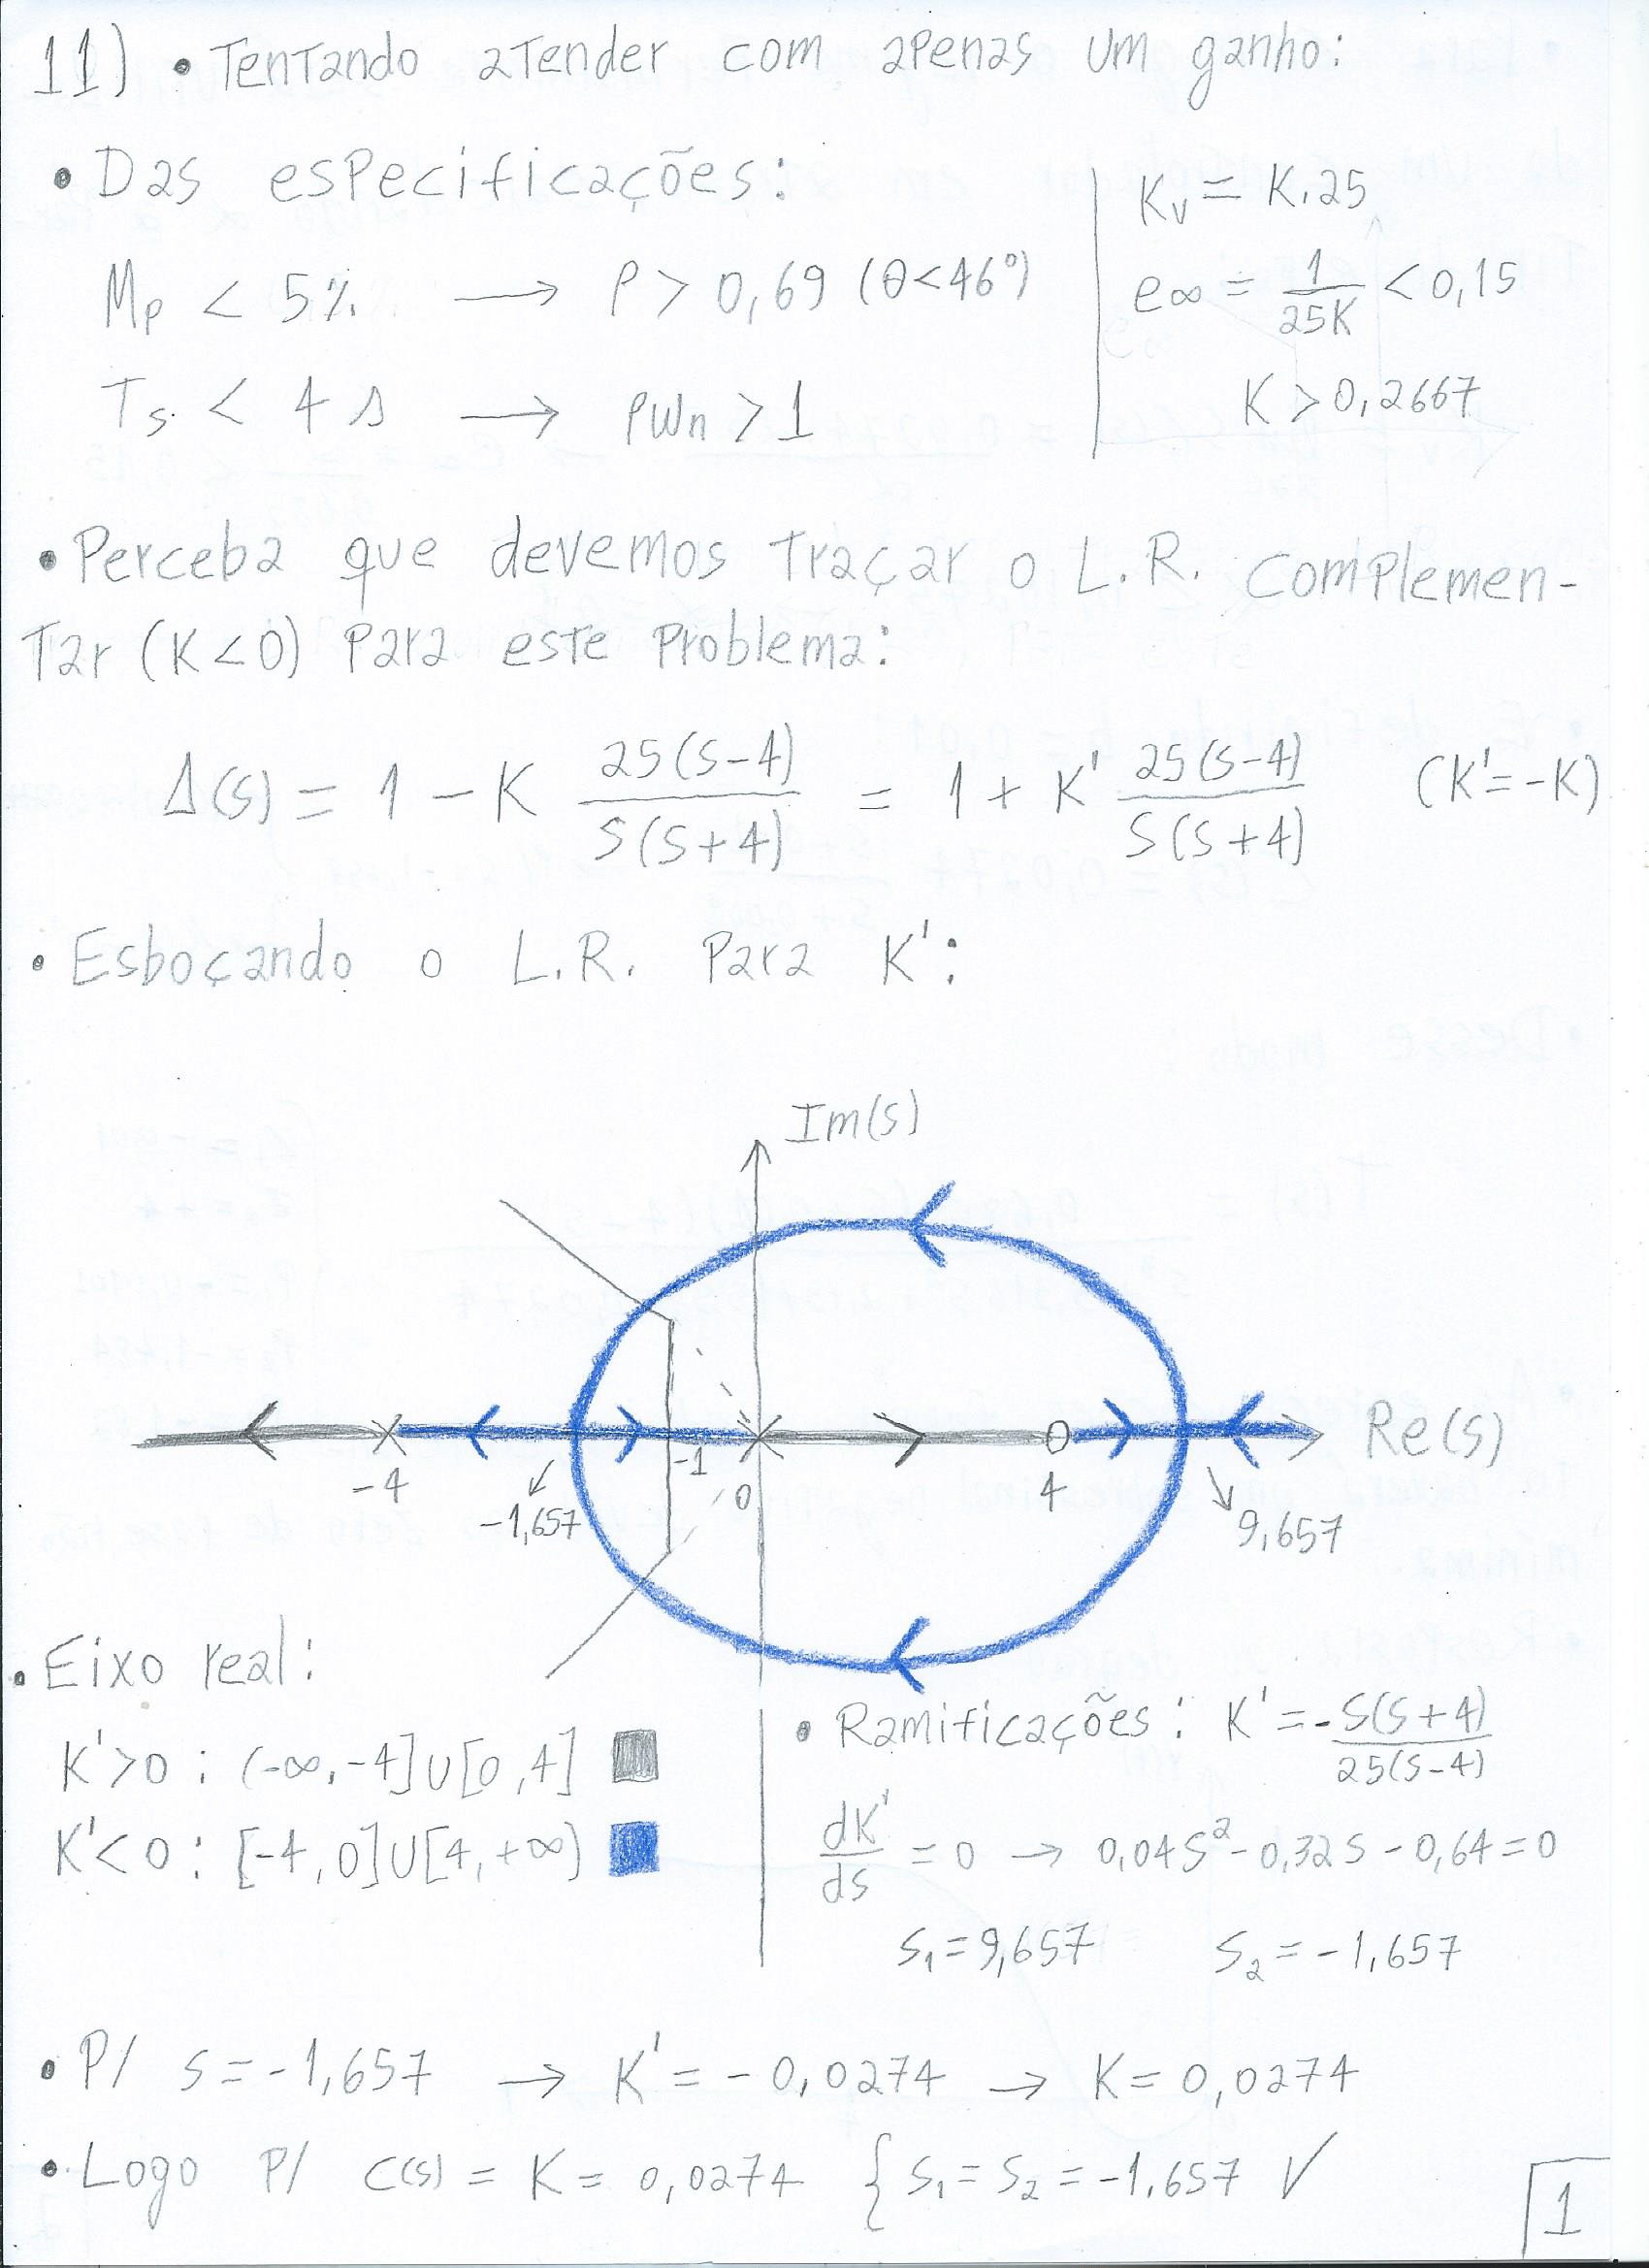 11) • Tentando atender com apenas um ganho:
• Das especificações:
Mp < 5% → ρ > 0,69 (θ<46°)
Ts < 4 s → ρWn > 1
Kv = K.25
e∞ = 1/25K < 0,15
K > 0,2667
• Perceba que devemos traçar o L.R. complemen-
tar (K<0) para este problema:
Δ(s) = 1 - K 25(s-4)/s(s+4) = 1 + K' 25(s-4)/s(s+4) (K'=-K)
• Esboçando o L.R. para K':
Im(s)
Re(s)
-4
-1,657
-1
0
4
9,657
• Eixo real:
K'>0 : (-∞,-4]U[0,4]
K'<0 : [-4,0]U[4,+∞)
• Ramificações: K' = -s(s+4)/25(s-4)
dK'/ds = 0 → 0,04s² - 0,32s - 0,64 = 0
s₁ = 9,657 s₂ = -1,657
• P/ s = -1,657 → K' = -0,0274 → K = 0,0274
• Logo p/ C(s) = K = 0,0274 { s₁ = s₂ = -1,657 √
1